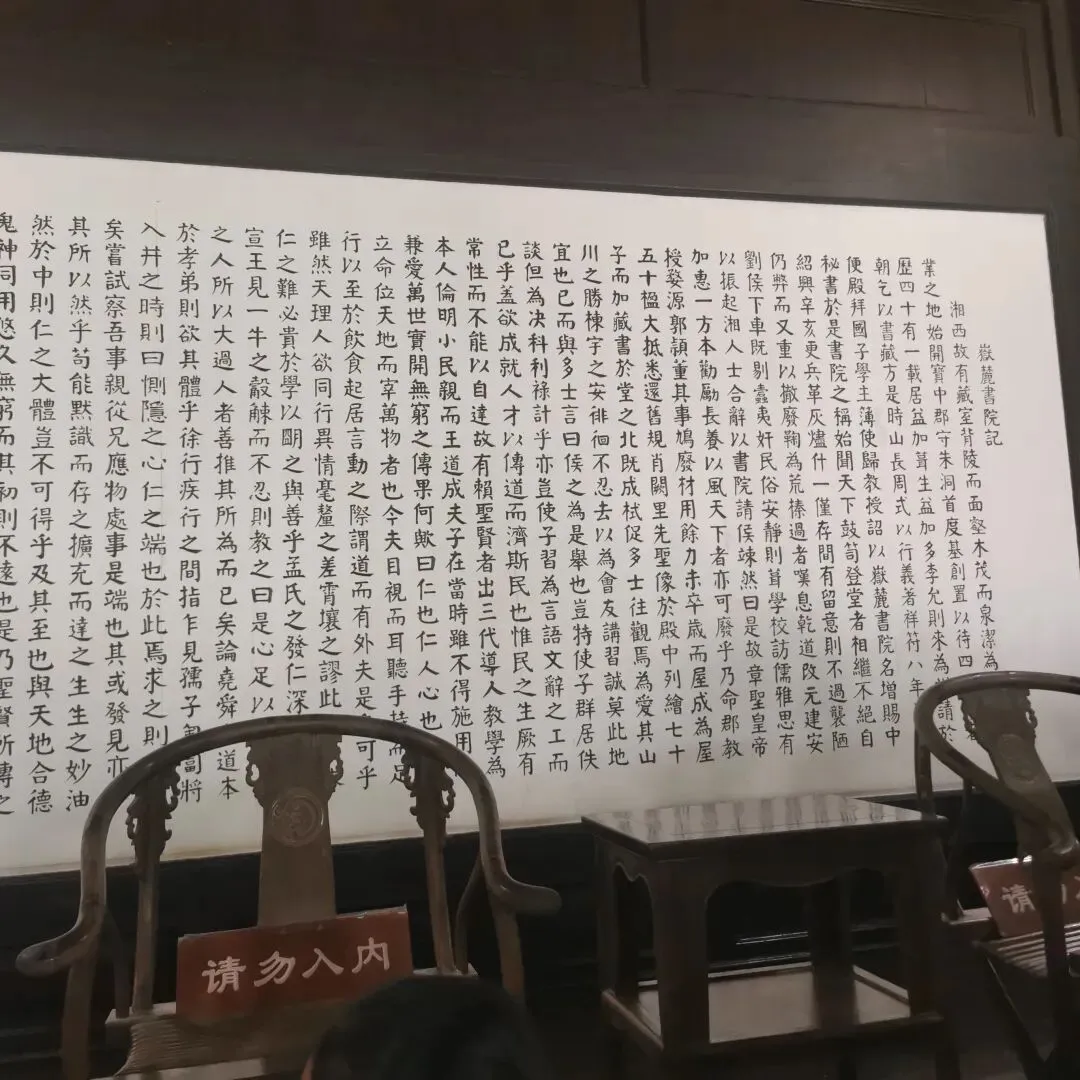 嶽麓書院記
湘西故有藏室背陵而面壑木茂而泉潔為
業之地始開寶中郡守朱洞首度基創置以待四
歷四十有一載居益加葺生益加多李允則來為請於
朝乞以書藏方是時山長周式以行義著祥符八年
便殿拜國子學主薄使歸教授詔以嶽麓書院名增賜中
秘書於是書院之稱始聞天下鼓笥登堂者相繼不絕自
紹興辛亥更兵革灰燼什一僅存間有留意則不過襲陋
仍弊而又重以撤廢鞠為荒榛過者嘆息乾道改元建安
劉侯下車既剔蠹夷奸民俗安靜則葺學校訪儒雅思有
以振起湘人士合辭以書院請侯竦然曰是故章聖皇帝
加惠一方本勸勵長養以風天下者亦可廢乎乃命郡教
授婺源郭頴董其事鳩廢材用餘力未卒歲而屋成為屋
五十楹大抵悉還舊規肖闕里先聖像於殿中列繪七十
子而加藏書於堂之北既成栻促多士往觀焉為愛其山
川之勝棟宇之安徘徊不忍去以為會友講習誠莫此地
宜也已而與多士言曰侯之為是舉也豈特使子群居佚
談但為決科利祿計乎亦豈使子習為言語文辭之工而
已乎蓋欲成就人才以傳道而濟斯民也惟民之生厥有
常性而不能以自達故有賴聖賢者出三代導人教學為
本人倫明小民親而王道成夫子在當時雖不得施用
兼愛萬世實開無窮之傳果何歟曰仁也仁人心也
立命位天地而宰萬物者也今夫目視而耳聽手持而足
行以至於飲食起居言動之際謂道而有外夫是可乎
雖然天理人欲同行異情毫釐之差霄壤之謬此
仁之難必貴於學以明之與善乎孟氏之發仁深
宣王見一牛之觳觫而不忍則教之曰是心足以
之人所以大過人者善推其所為而已矣論堯舜道本
於孝弟則欲其體乎徐行疾行之間指乍見孺子匍匐將
入井之時則曰惻隱之心仁之端也於此焉求之則
矣嘗試察吾事親從兄應物處事是端也其或發見亦
其所以然乎苟能默識而存之擴充而達之生生之妙油
然於中則仁之大體豈不可得乎及其至也與天地合德
鬼神同用悠久無窮而其初則不遠也是乃聖賢所傳之
请勿入内
请勿